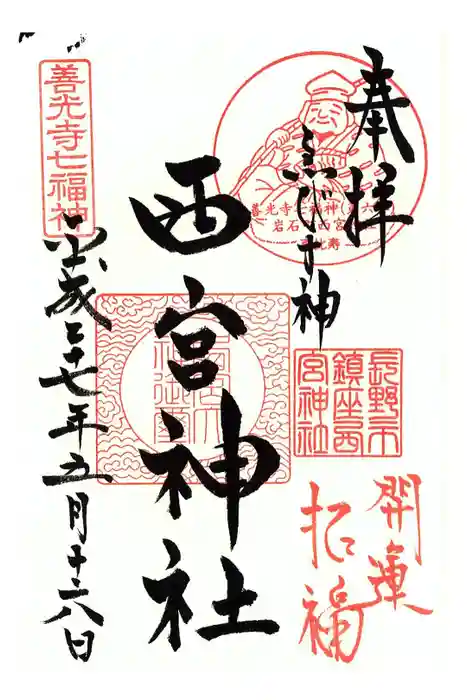 奉拝
ゑびす神
西宮神社
平成二十七年五月十六日
善光寺七福神
善光寺七福神
岩石
西宮
比寿
長野市
鎮座西
宮神社
開運
招福